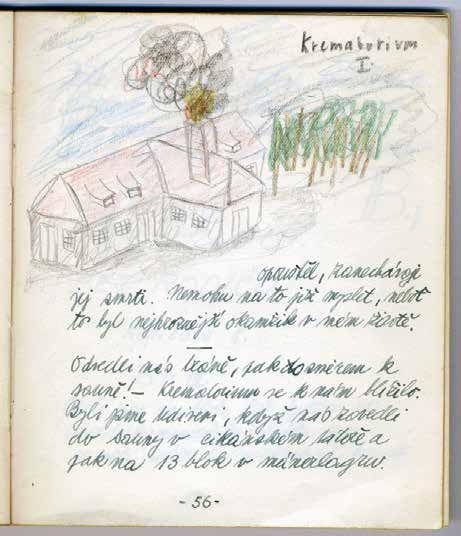 Krematorium
I.
opouštěl, zanechávaje
jej smrti. Nemohu na to již myslet, neboť
to byl nejhroznější okamžik v mém životě.
Odvedli nás braně, pak směrem k
sauně! – Krematorium se k nám blížilo.
Byli jsme udiveni, když nás zavedli
do sauny v cikánském táboře a
pak na 13 blok v mänerlagru.
- 56 -